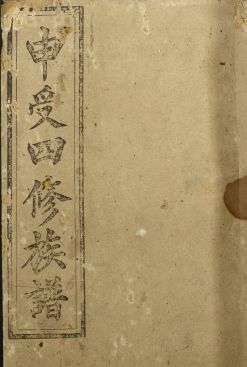 申受四修族譜